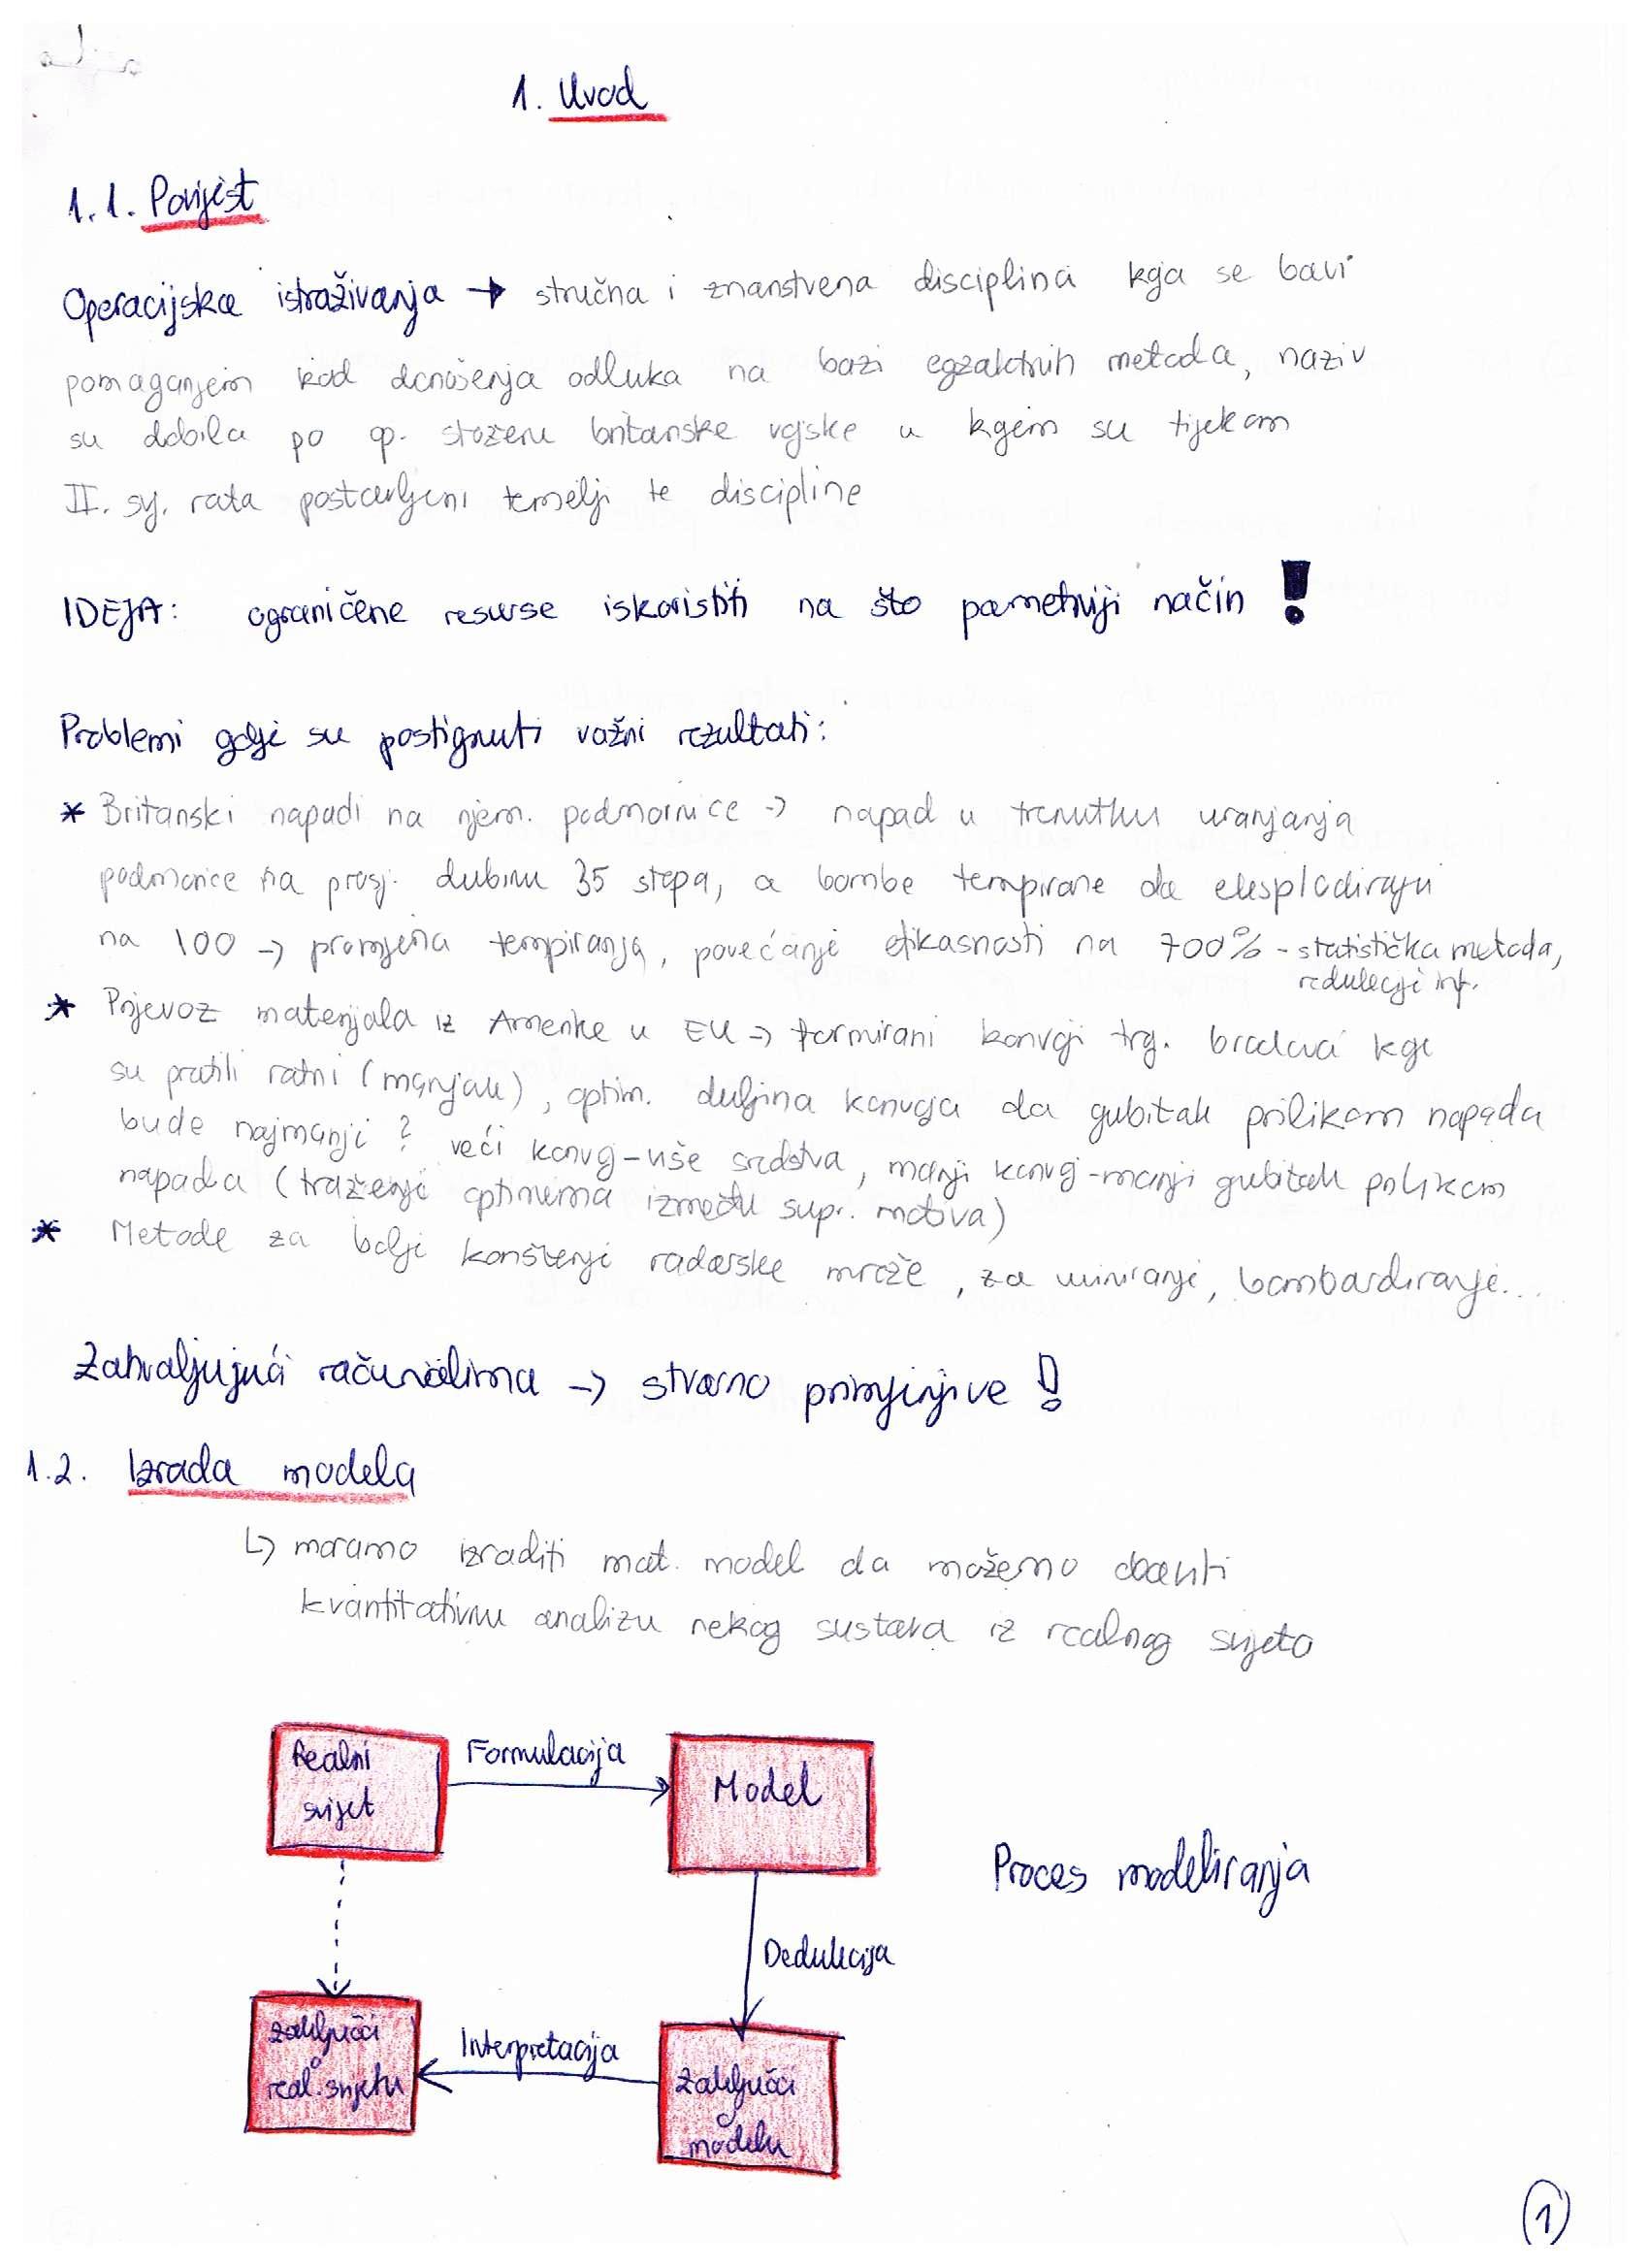 1. Uvod
1.1. Povijest
Operacijska istraživanja → stručna i znanstvena disciplina koja se bavi
pomaganjem kod donošenja odluka na bazi egzaktnih metoda, naziv
su dobila po op. stožeru britanske vojske u kojem su tijekom
II. svj. rata postavljeni temelji te discipline
IDEJA: ograničene resurse iskoristiti na što pametniji način !
Problemi gdje su postignuti važni rezultati:
* Britanski napadi na njem. podmornice → napad u trenutku uranjanja
podmornice na prosj. dubinu 35 stopa, a bombe tempirane da eksplodiraju
na 100 → promjena tempiranja, povećanje efikasnosti na 700% - statistička metoda,
redukcije inf.
* Prijevoz materijala iz Amerike u EU → formirani konvoji trg. brodova koje
su pratili ratni (manjak), optim. duljina konvoja da gubitak prilikom napada
bude najmanji? veći konvoj-više sredstva, manji konvoj-manji gubitak prilikom
napada (traženje optimuma između supr. motiva)
* Metode za bolje korištenje radarske mreže, za miniranje, bombardiranje...
Zahvaljujući računalima → stvarno primjenjive !
1.2. Izrada modela
↳ moramo izraditi mat. model da možemo dobiti
kvantitativnu analizu nekog sustava iz realnog svijeta
Realni
svijet
Formulacija
Model
Proces modeliranja
Dedukcija
Zaključci
o
real. svijetu
Interpretacija
Zaključci
o
modelu
1